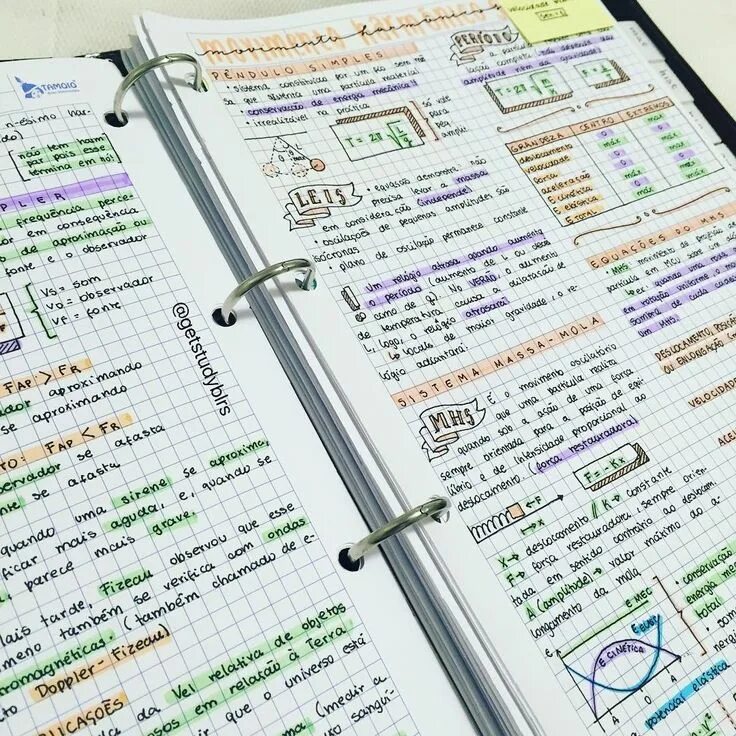 TAMOIO
n-ésimo har-
não tem harm.
par pois esse
termina em nó!
PLER
frequência perce-
dor em consequência
o de aproximação ou
fonte e o observador
Vs = som
Vo = observador
Vf = fonte
FAP > FR
dor aproximando
se aproximando
TO: FAP < FR
servador se afasta
nte se afasta
quando uma sirene se aproxima,
ficar mais aguda, e, quando se
, parece mais grave.
Mais tarde, Fizeau observou que esse
meno também se verifica com ondas
romagnéticas. (também chamado de e-
Doppler-Fizeau)
PLICAÇÕES
da vel relativa de objetos
osos em relação à Terra.
ir que o universo está
(medir a
sanguí-
@getstudyblrs
movimento harmônico
PÊNDULO SIMPLES
• sistema constituído por um fio sem mas-
sa que sustenta uma partícula material
• conservação de energia mecânica!
• irrealizável na prática
T = 2π √L/g
só vale
para
peq.
ampli.
LEIS
• equação demonstra não
precisa levar a massa
em consideração (independe)
• oscilações de pequenas amplitudes são
isócronas
• plano de oscilação permanece constante
Um relógio atrasa quando aumenta
o período (aumento de L ou decés-
cimo de g). No VERÃO, o aumento
de temperatura causa a dilatação de
L, logo, o relógio atrasará.
↳ locais de maior gravidade, o re-
lógio adiantará!
SISTEMA MASSA-MOLA
MHS
É o movimento oscilatório
que uma partícula realiza
quando sob a ação de uma força
sempre orientada para a posição de equi-
líbrio e de intensidade proporcional ao
deslocamento. (força restauradora)
F = -Kx
←F
→x
X → deslocamento // K → constante
F → força restauradora, sempre orien-
tada em sentido contrário ao deslocam.
A (amplitude) → valor máximo do a-
longamento da mola
E MEC
E ELÁST
E CINÉTICA
E
A O A
• conservação
energia mecâ
total!
• som
nerg
potencial elástica
velocidade
PERÍODO
completa
amplitude nem da gravidade)
GRANDEZA CENTRO EXTREMOS
deslocamento 0 máx
velocidade máx 0
força 0 máx
aceleração 0 máx
E cinética máx 0
E elástica 0 máx
E TOTAL
EQUAÇÕES DO MHS
• MHS: movimento de projeção de
partícula em MCU sobre um diâ
↳ ex: quando uma roda es
em rotação uniforme, o mo
sombra de cada ponto
um MHS.
DESLOCAMENTO, POSIÇÃO
OU ELONGAÇÃO
VELOCIDADE
ACEL